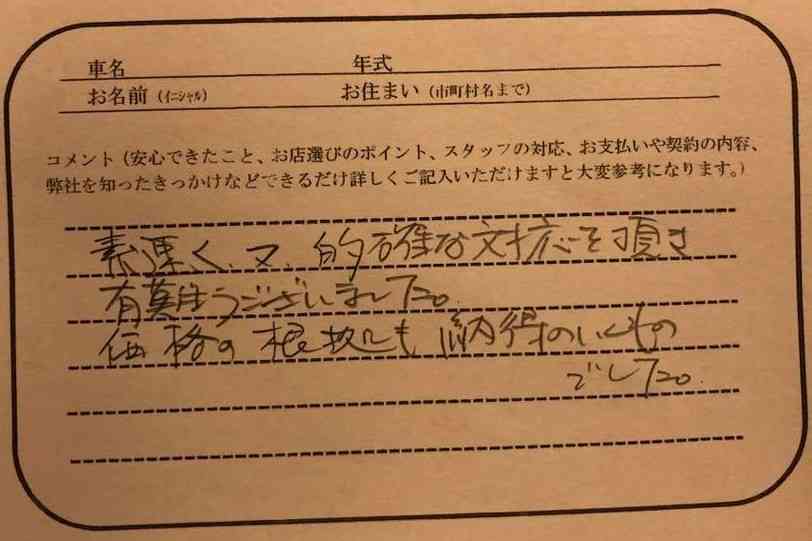 車名 年式
お名前(イニシャル) お住まい(市町村名まで)
コメント(安心できたこと、お店選びのポイント、スタッフの対応、お支払いや契約の内容、
弊社を知ったきっかけなどできるだけ詳しくご記入いただけますと大変参考になります。)
素速く、又、的確な対応を頂き
有難うございました。
価格の根拠にも納得のいくもの
でした。